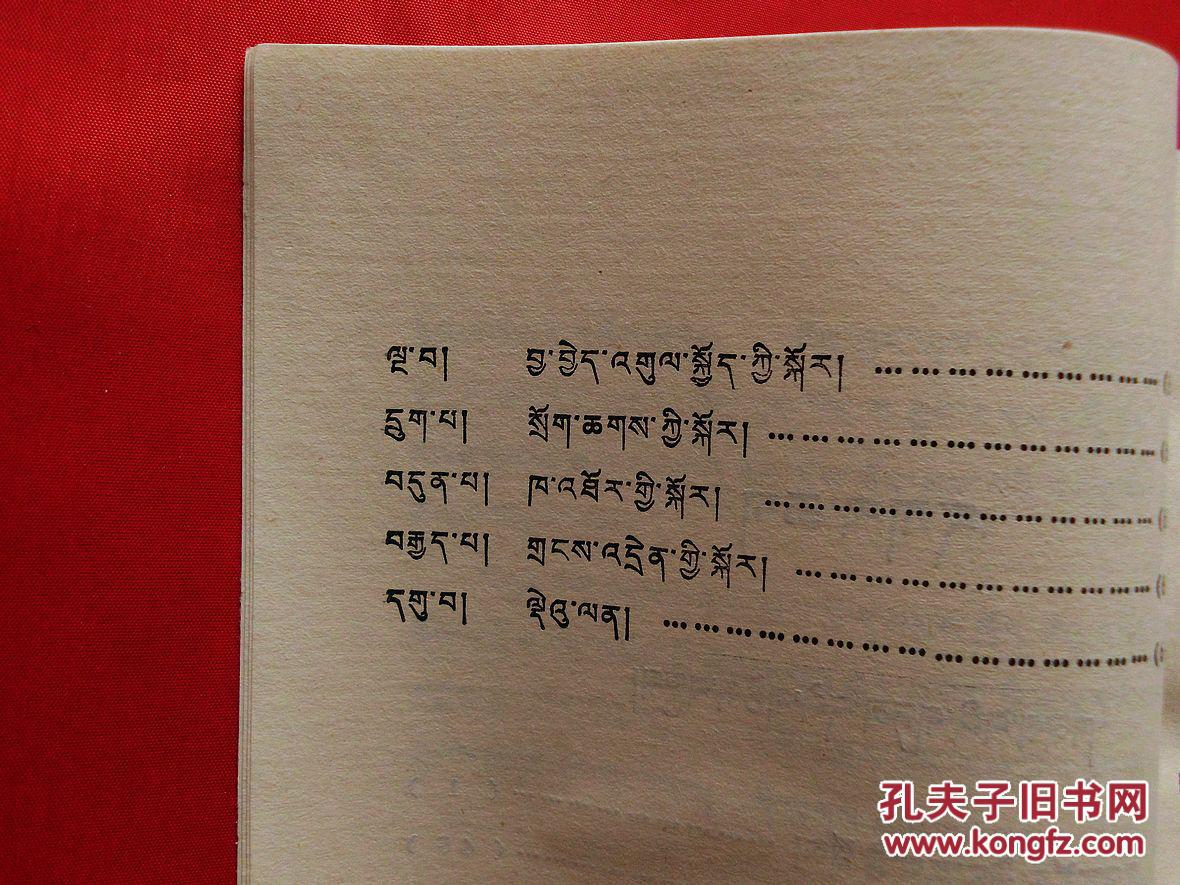 ལྔ་བ། བྱ་བྱེད་འགུལ་སྐྱོད་ཀྱི་སྐོར། ………………………
དྲུག་པ། སྲོག་ཆགས་ཀྱི་སྐོར། ………………………………
བདུན་པ། ཁ་འཐོར་གྱི་སྐོར། ………………………………
བརྒྱད་པ། གྲངས་འདྲེན་གྱི་སྐོར། ……………………………
དགུ་བ། ལྡེའུ་ལན། ………………………………………
孔夫子旧书网
www.kongfz.com